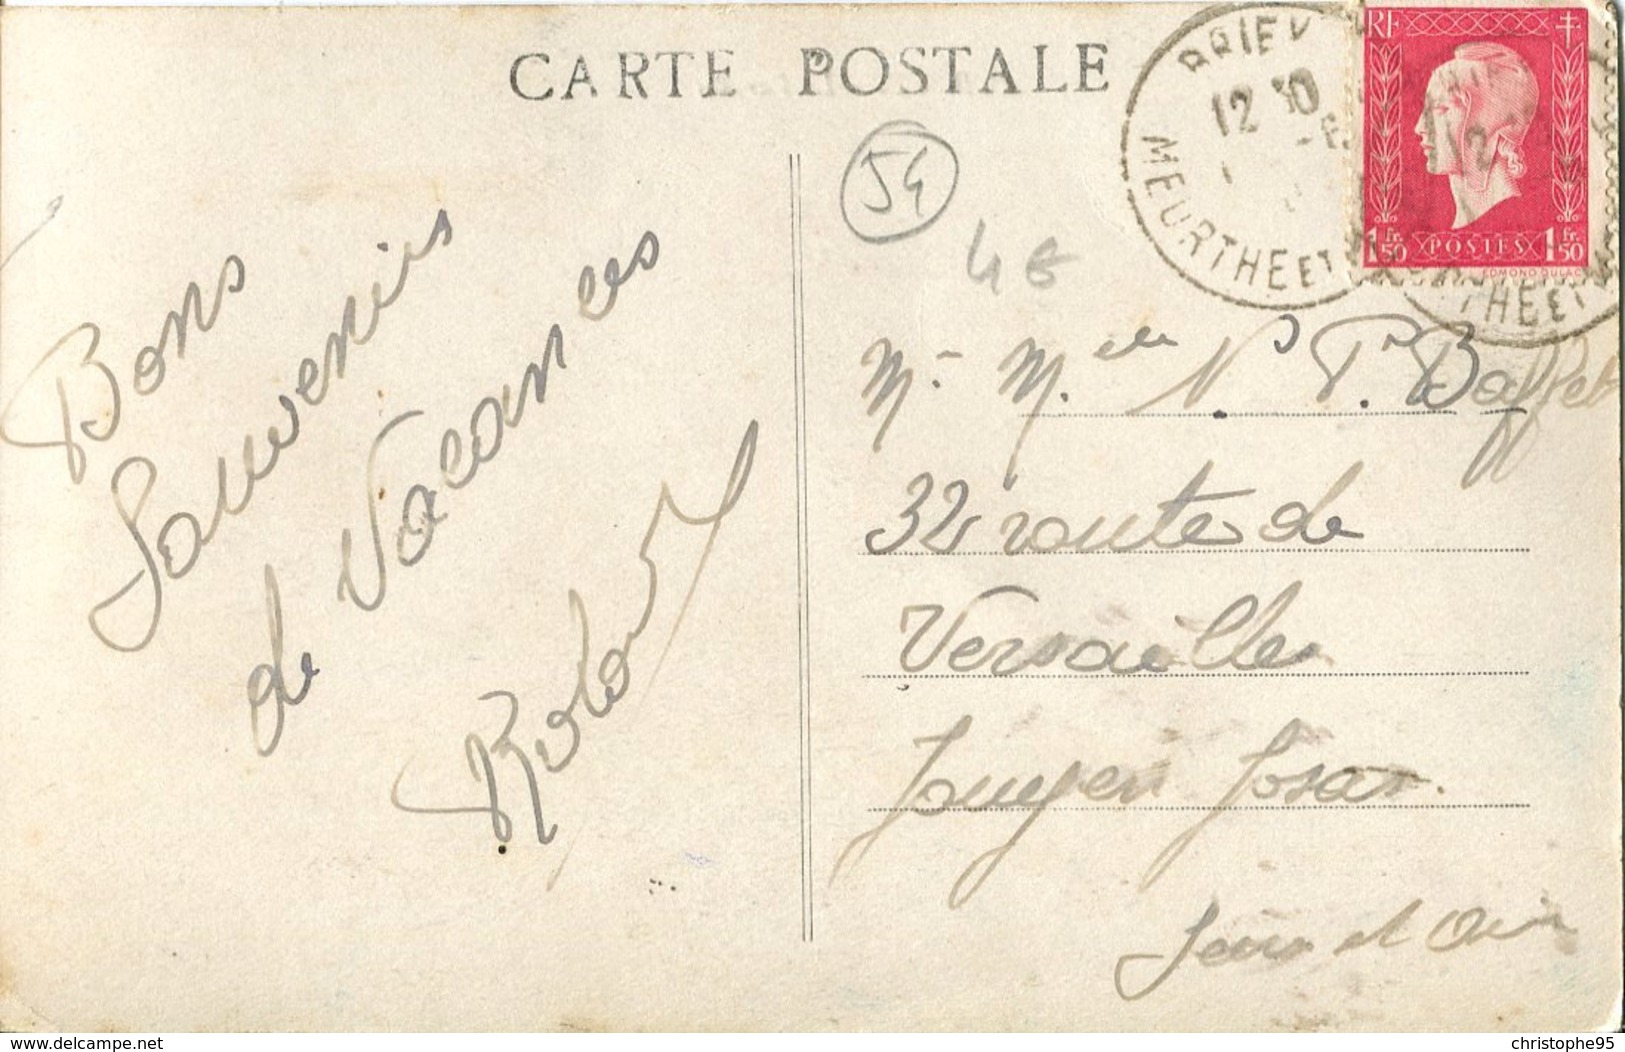 CARTE POSTALE
BRIEY
12 30
MEURTHE ET
RF
1 Fr. 50 POSTES 1 Fr. 50
EDMOND DULAC
54
Bons
Souvenirs
de Vacances
32 route de
Versailles
Jouy en Josas.
Seine et Oise
www.delcampe.net
christophe95